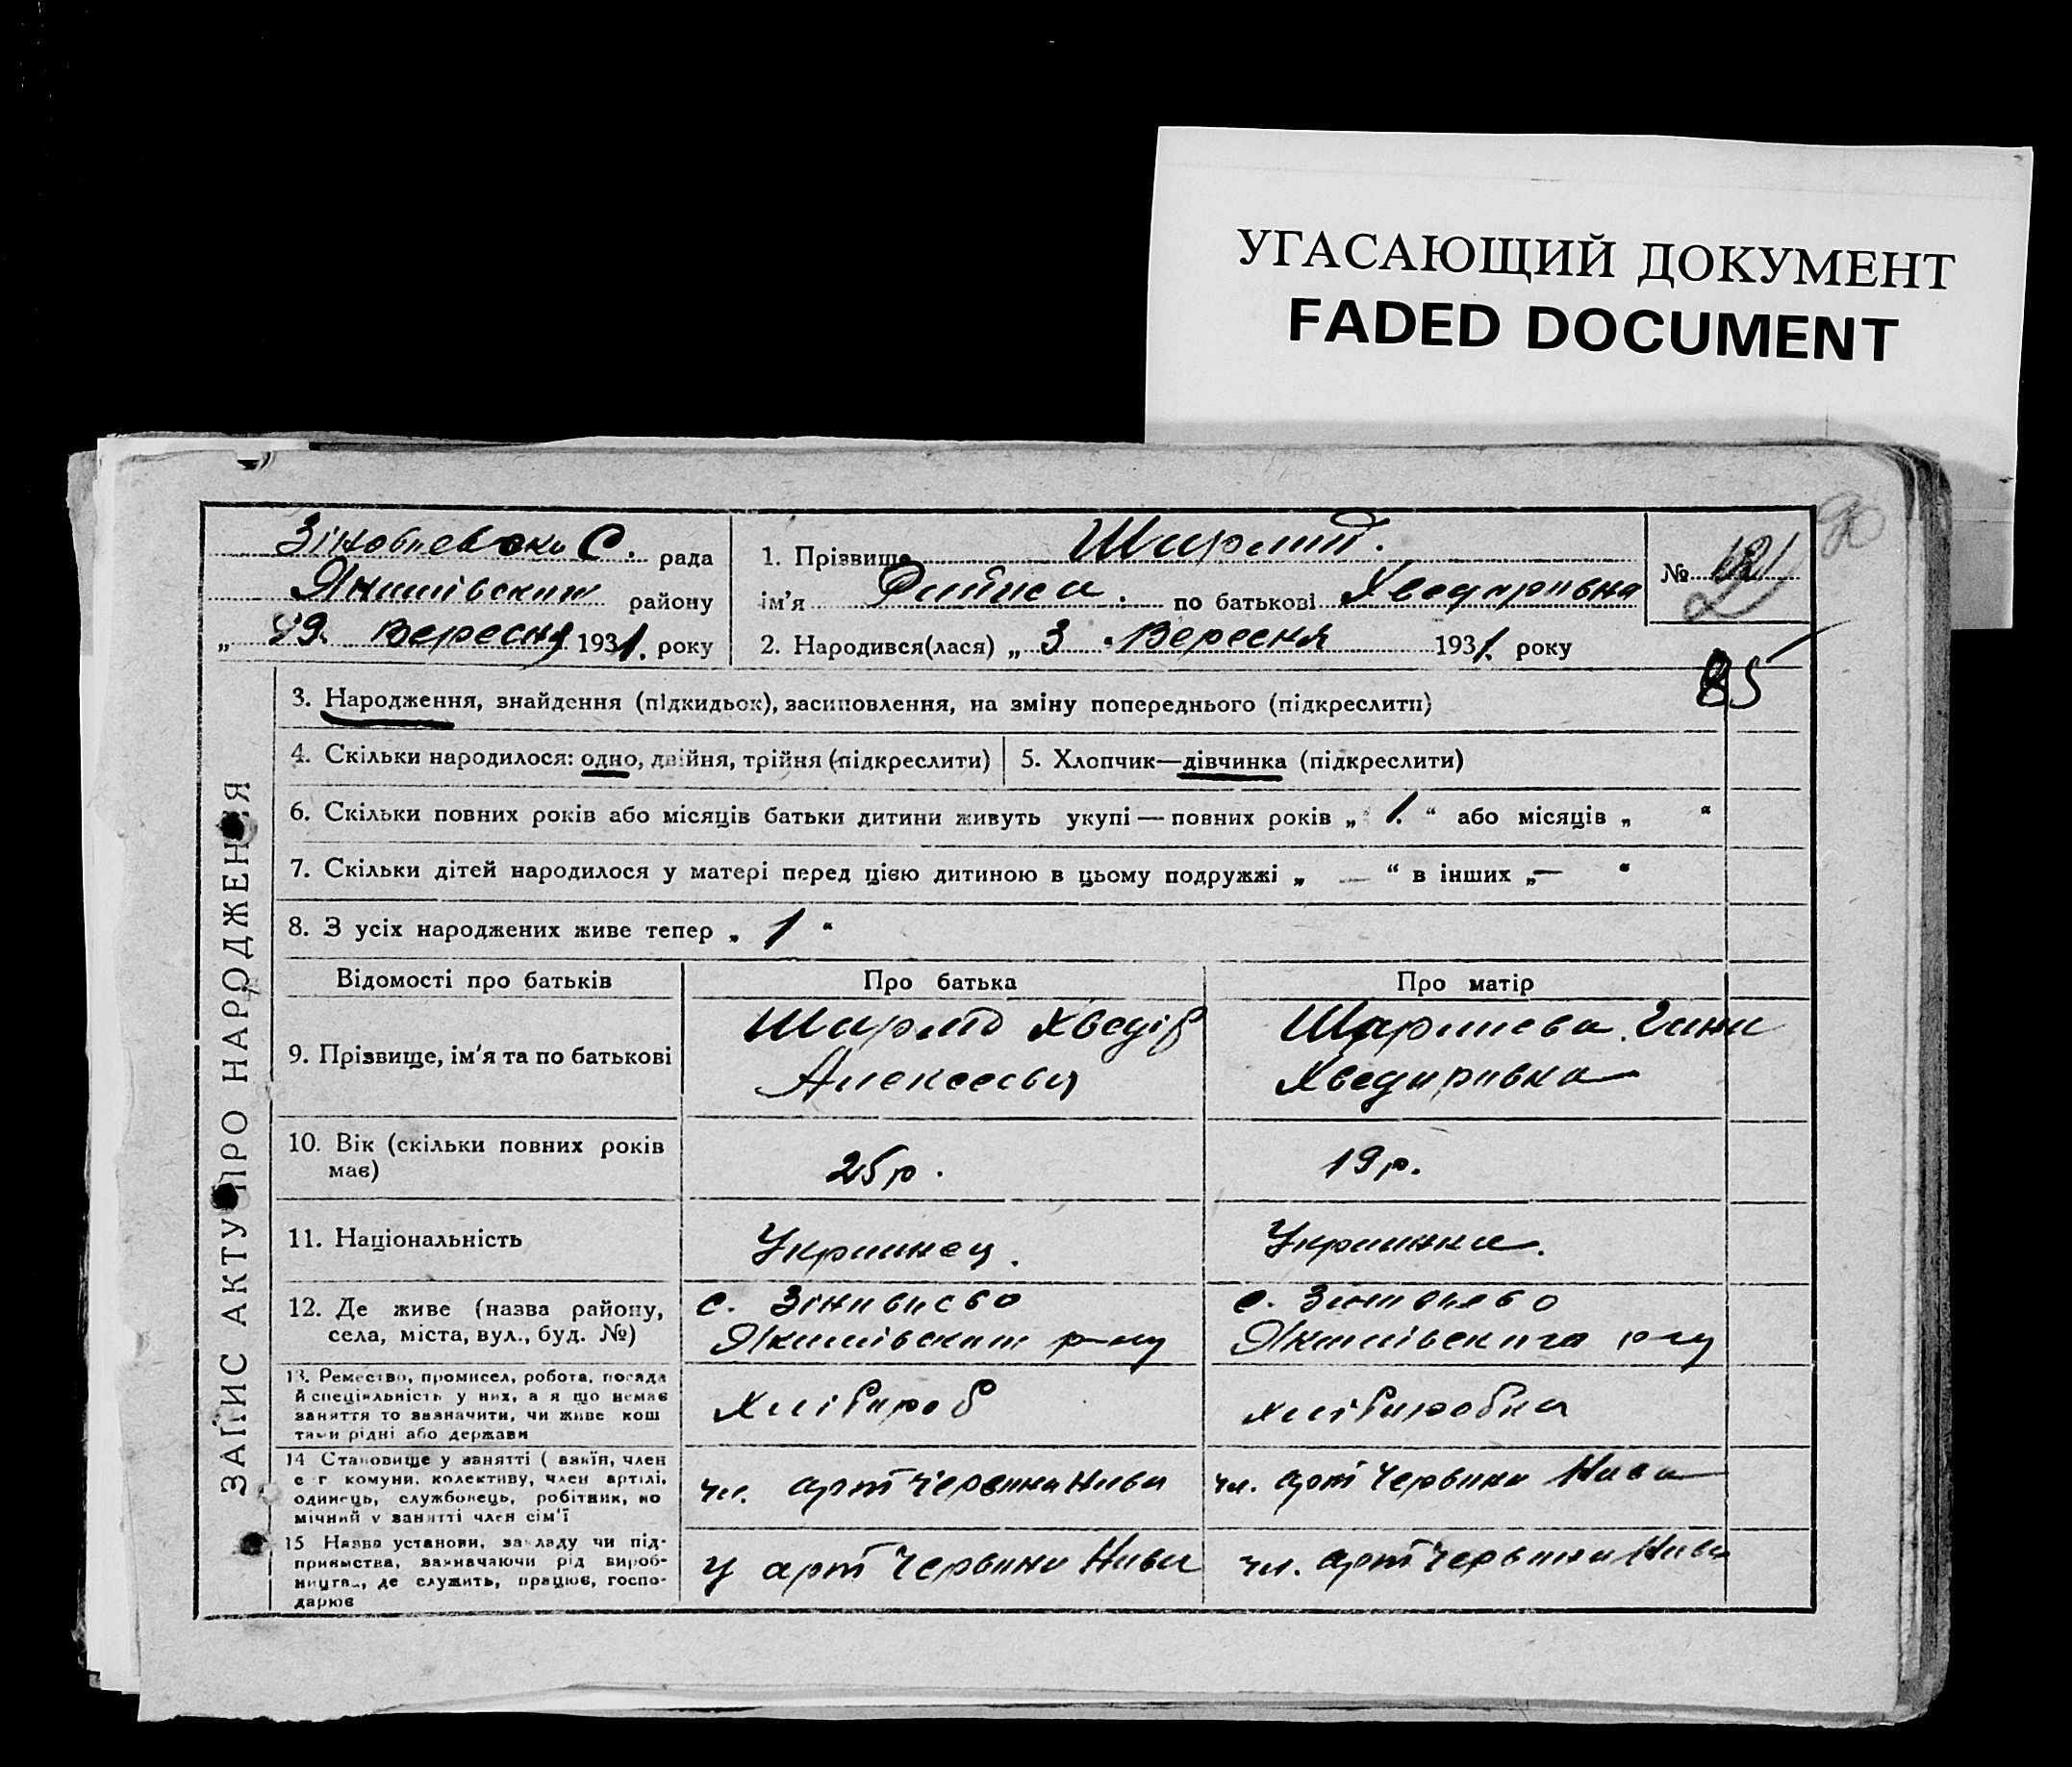 УГАСАЮЩИЙ ДОКУМЕНТ
FADED DOCUMENT
90
С. рада
району
„ 29 Вересня 1931. року
1. Прізвище
ім'я по батькові Хведоривна
2. Народився(лася) „ 3 Вересня 1931. року
№ 121
85
3. Народження, знайдення (підкидьок), засиновлення, на зміну попереднього (підкреслити)
4. Скільки народилося: одно, двійня, трійня (підкреслити)
5. Хлопчик—дівчинка (підкреслити)
6. Скільки повних років або місяців батьки дитини живуть укупі — повних років „ 1. “ або місяців „ “
7. Скільки дітей народилося у матері перед цією дитиною в цьому подружжі „ — “ в інших „— “
8. З усіх народжених живе тепер „ 1 “
ЗАПИС АКТУ ПРО НАРОДЖЕННЯ
Відомості про батьків
Про батька
Про матір
9. Прізвище, ім'я та по батькові
Хведір
Алексеевич
Хведоривна
10. Вік (скільки повних років
має)
25 р.
19 р.
11. Національність
Украинец.
Украинка.
12. Де живе (назва району,
села, міста, вул., буд. №)
с. Зіновьево
Якимівского р-ну
с. Зіновьево
Якимівского р-ну
13. Ремество, промисел, робота, посада
й спеціяльність у них, а я що немає
заняття то зазначити, чи живе кош
тами рідні або держави
Хлібороб
хліборобка
14 Становище у занятті ( азяїн, член
с г комуни, колективу, член артілі,
одинець, службовець, робітник, по
мічний у занятті член сім'ї
чл. арт Червона Нива
чл. арт Червона Нива
15 Назва установи, закладу чи під-
приємства, зазначаючи рід вироб-
ництва, де служить, працює, госпо-
дарює
у арт Червона Нива
чл. арт Червона Нива